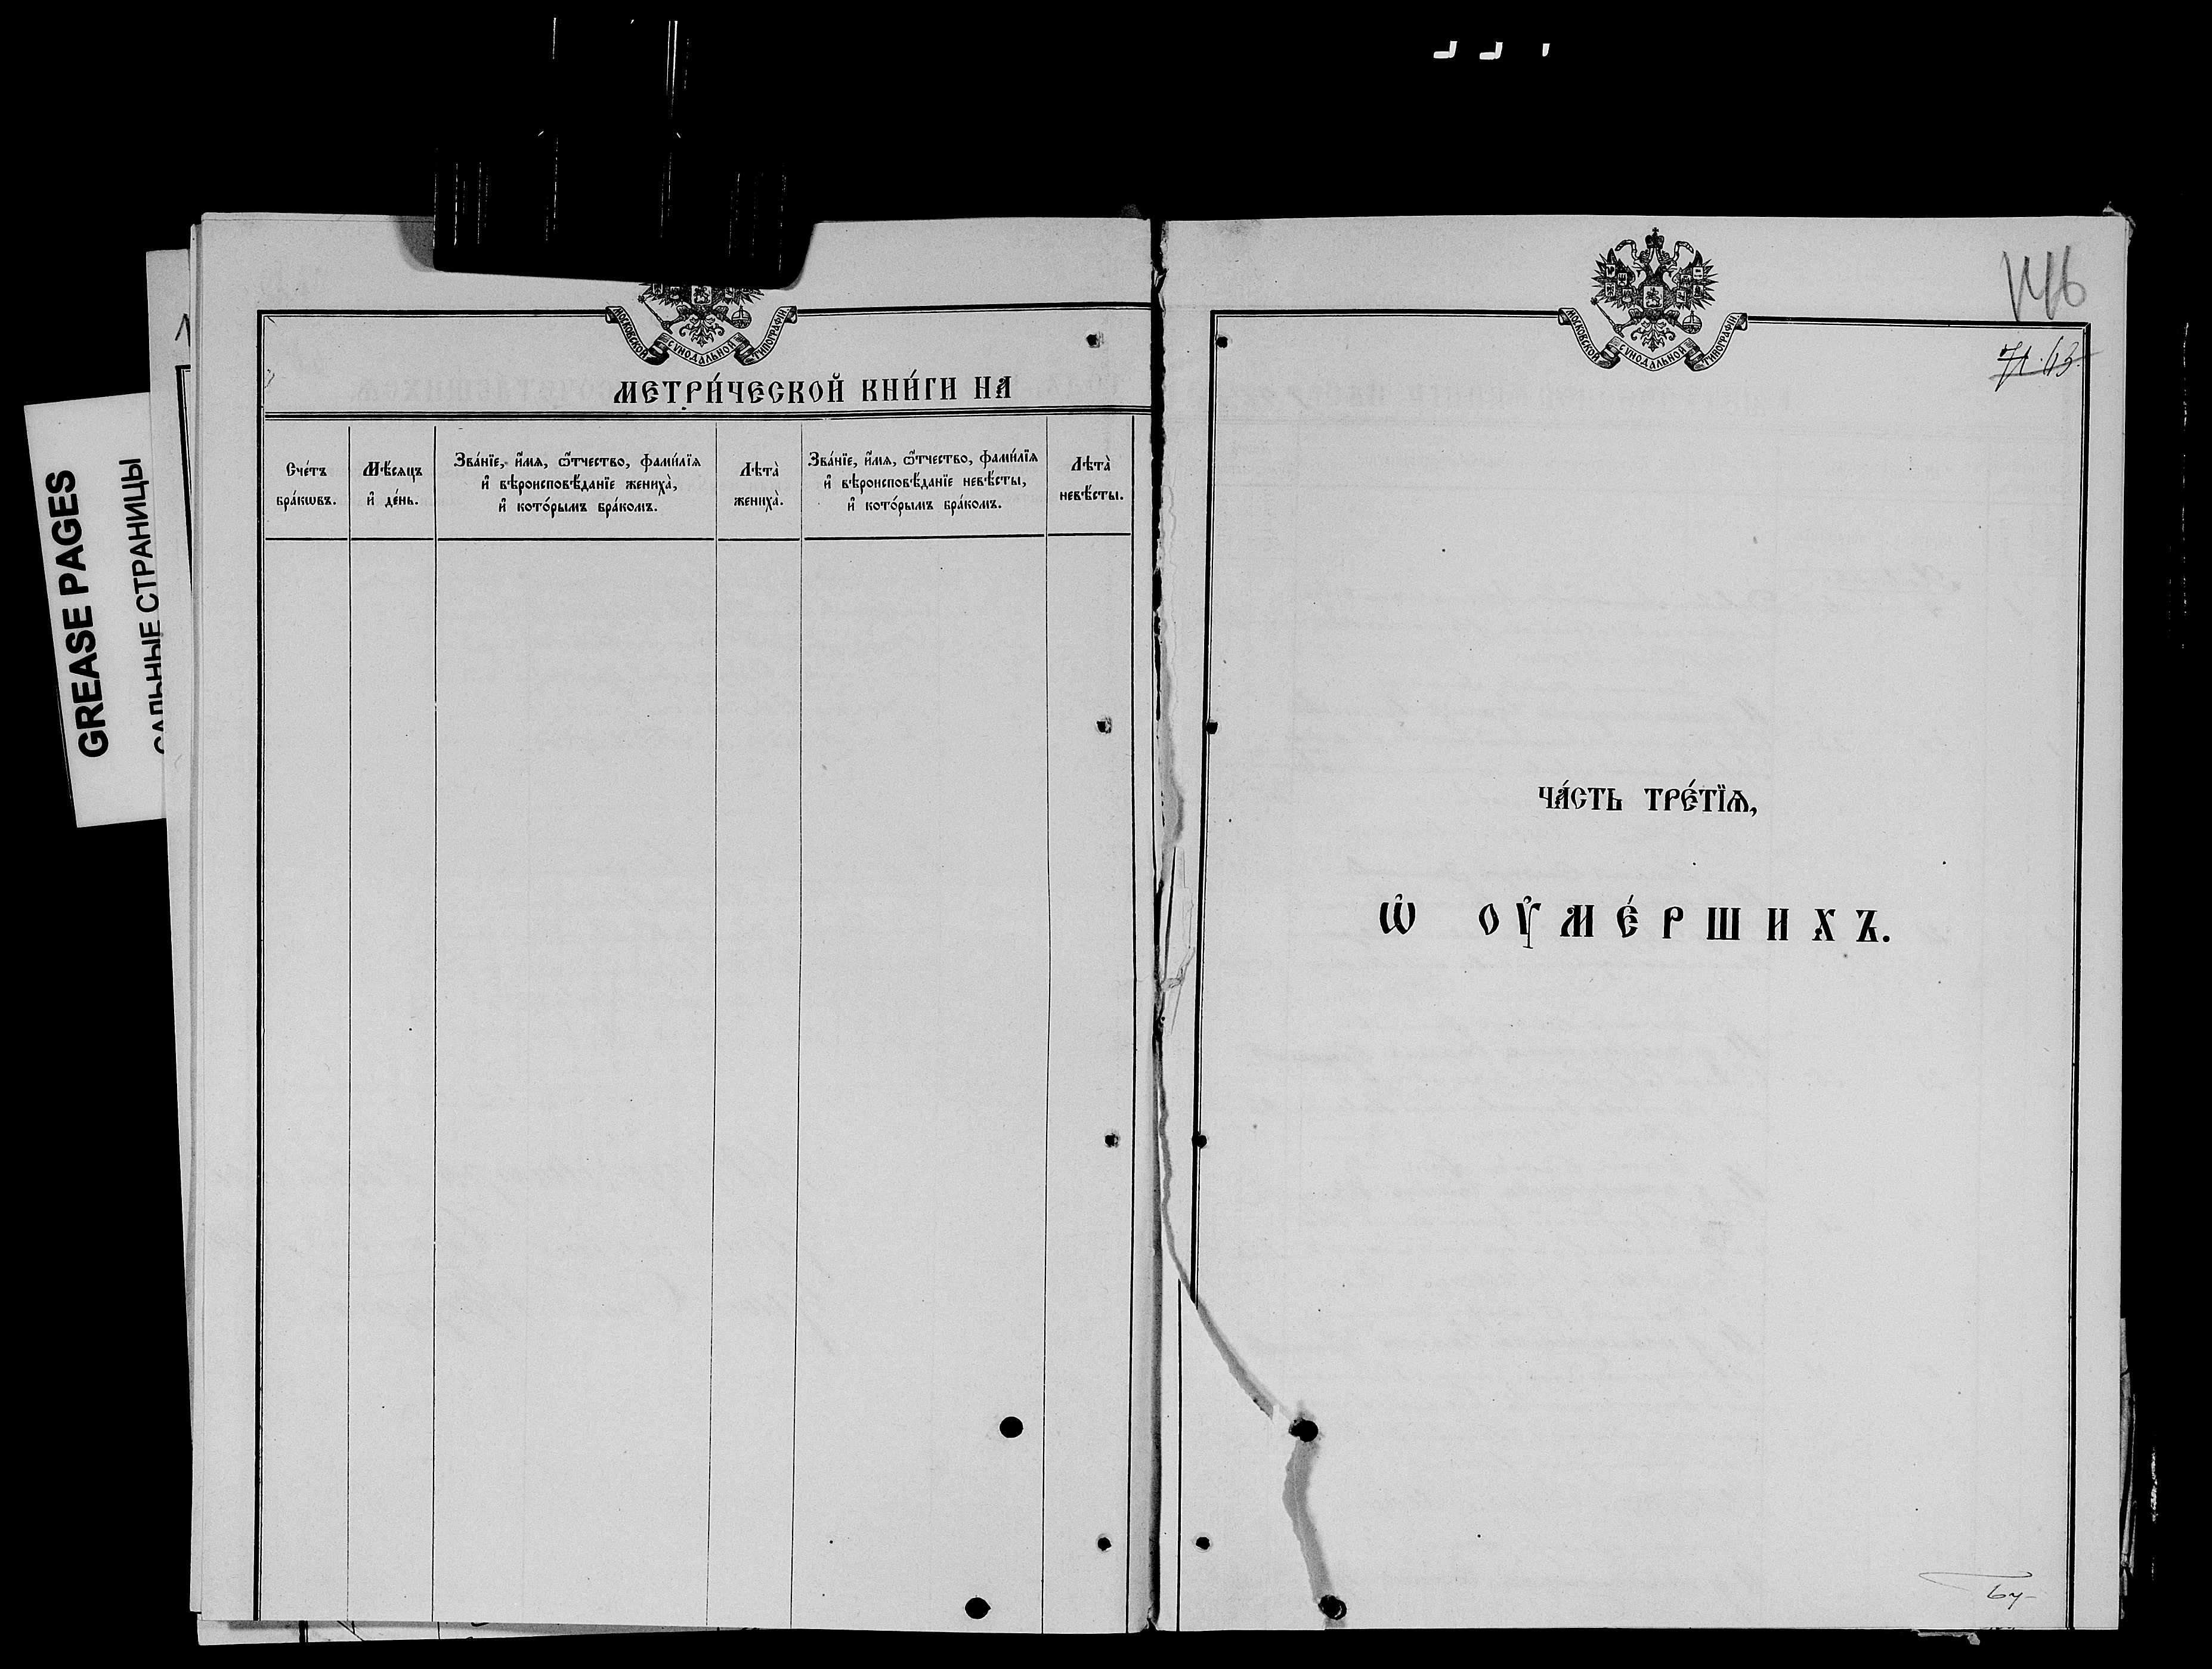 GREASE PAGES
САЛЬНЫЕ СТРАНИЦЫ
МОСКОВСКОЙ СѴНОДАЛЬНОЙ ТИПОГРАФІИ
МЕТРИ́ЧЕСКОЙ КНИ́ГИ НА
Сче́тъ
бра́кѡвъ.
Мѣ́сяцъ
и҆ де́нь.
Зва́нїе, и҆́мя, ѻ҆́тчество, фами́лїя
и҆ вѣроисповѣ́данїе жениха̀,
и҆ кото́рымъ бра́комъ.
Лѣта̀
жениха̀.
Зва́нїе, и҆́мя, ѻ҆́тчество, фами́лїя
и҆ вѣроисповѣ́данїе невѣ́сты,
и҆ кото́рымъ бра́комъ.
Лѣта̀
невѣ́сты.
МОСКОВСКОЙ СѴНОДАЛЬНОЙ ТИПОГРАФІИ
146
71. 63.
ЧА́СТЬ ТРЕ́ТЇѦ,
Ѡ҆ ОУ҆МЕ́РШИХЪ.